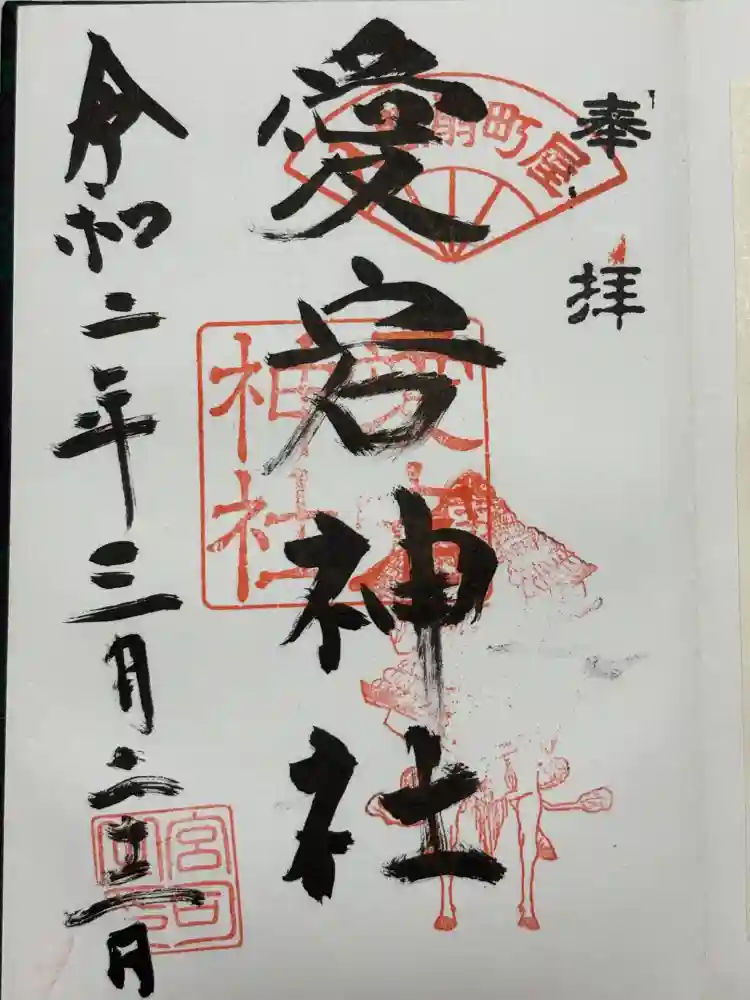 奉拝
扇町屋
愛宕神社
愛宕神社
令和二年三月二十二日
宮司之印